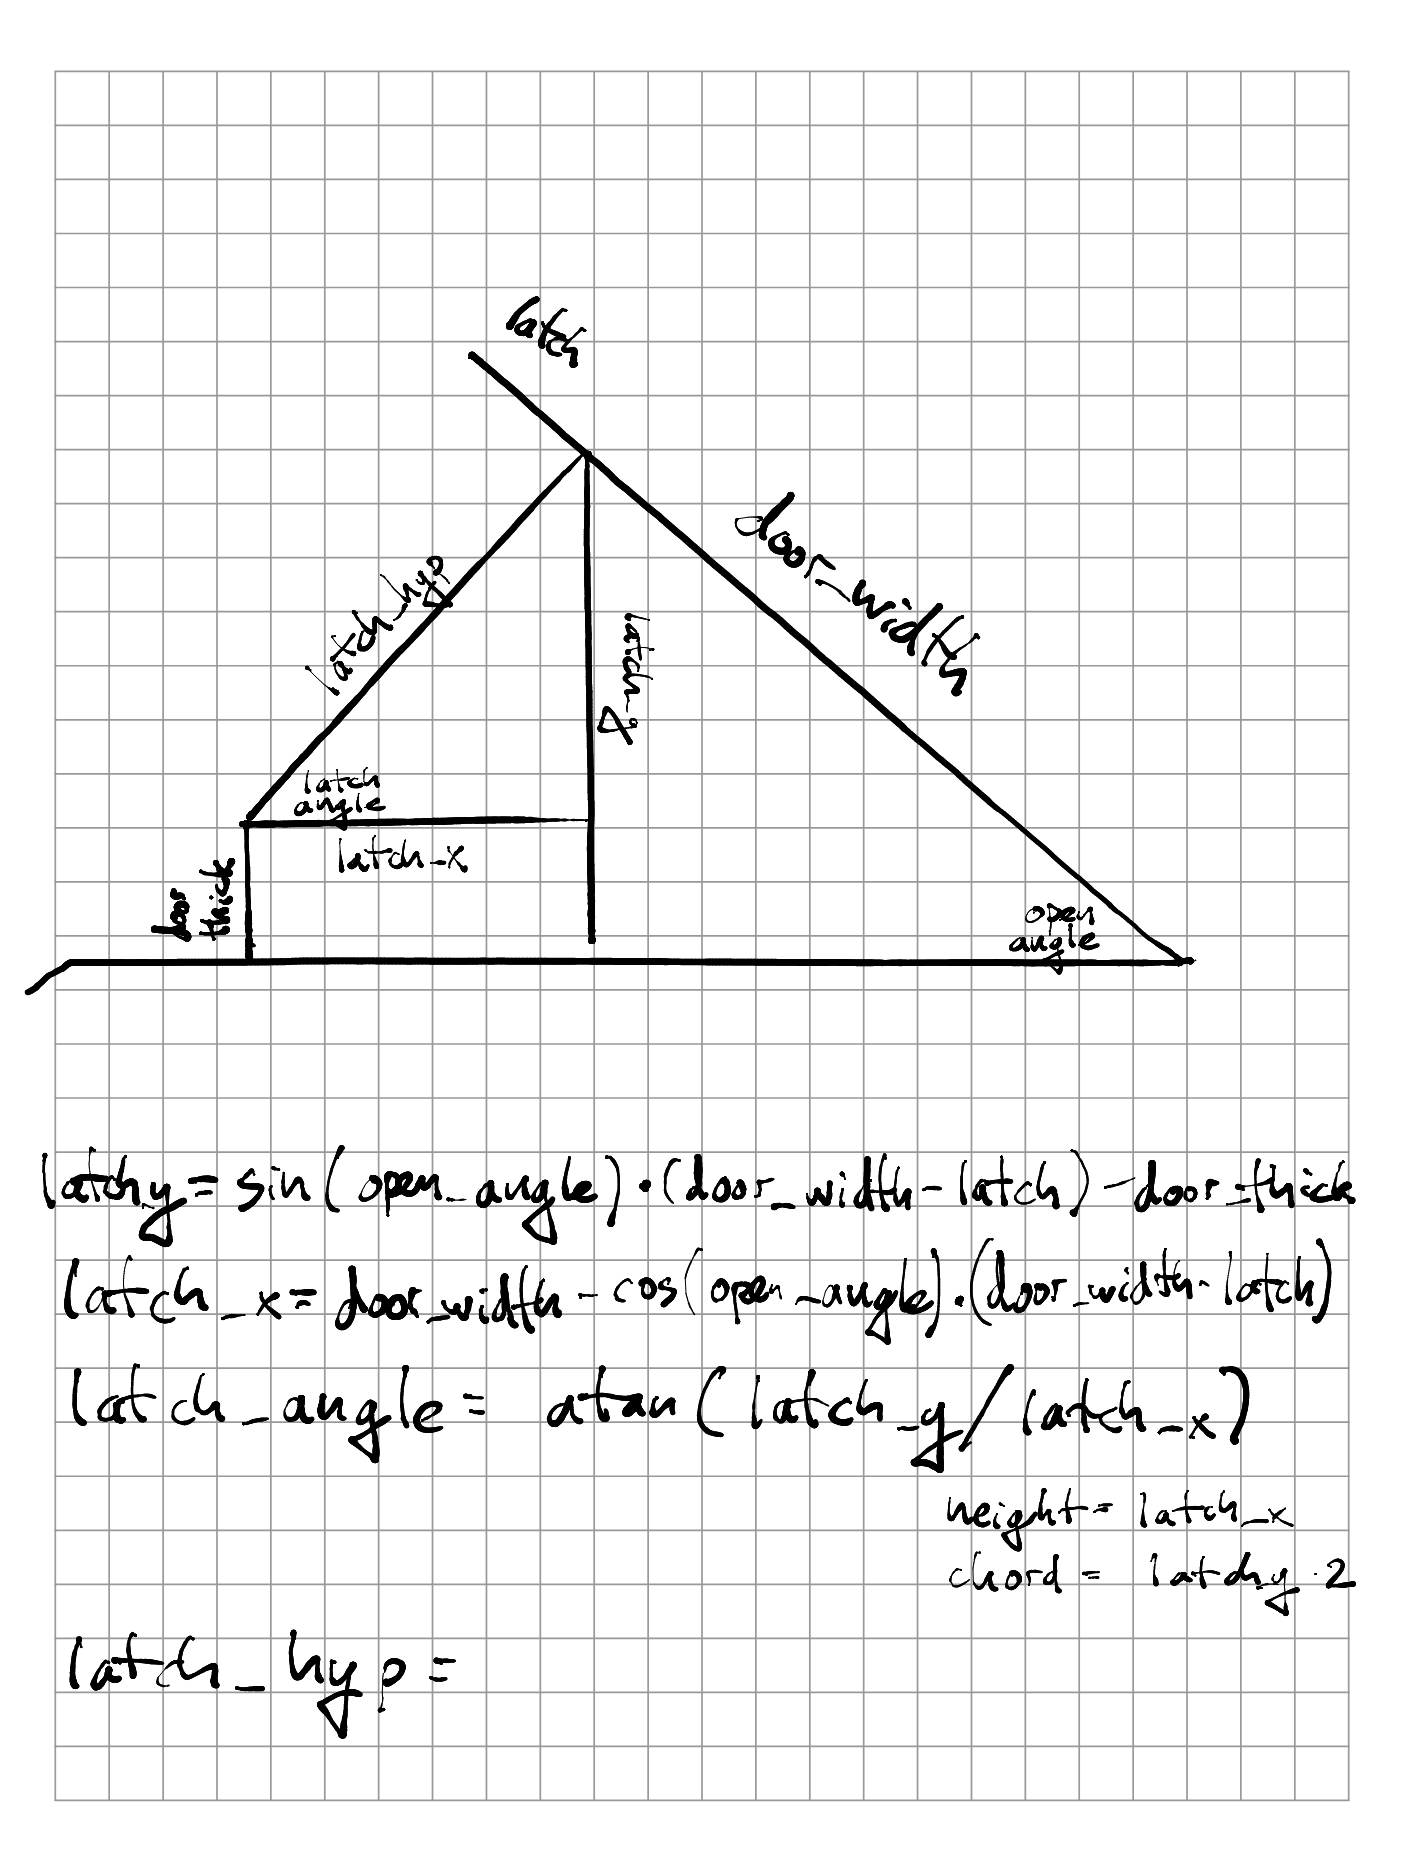 latch
door_width
latch_hyp
latch_y
latch
angle
latch_x
door
thick
open
angle
latchy = sin(open_angle)·(door_width-latch)-door_thick
latch_x = door_width-cos(open_angle)·(door_width-latch)
latch_angle = atan(latch_y/latch_x)
height = latch_x
chord = latchy·2
latch_hyp =